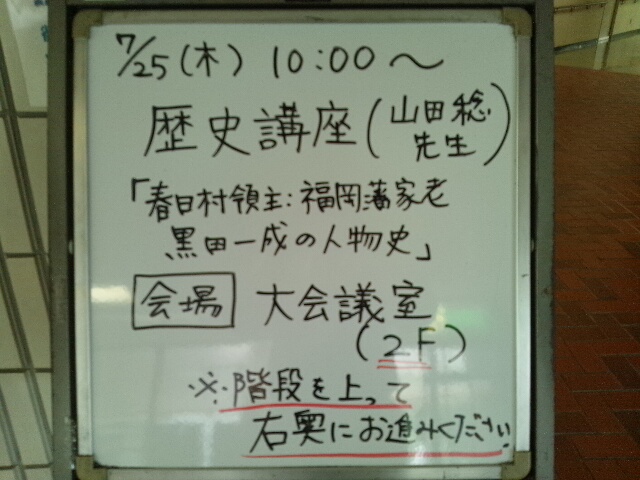 7/25(木) 10:00～
歴史講座(山田稔先生)
「春日村領主:福岡藩家老
黒田一成の人物史」
会場 大会議室
(2F)
※階段を上って
右奥にお進みください。